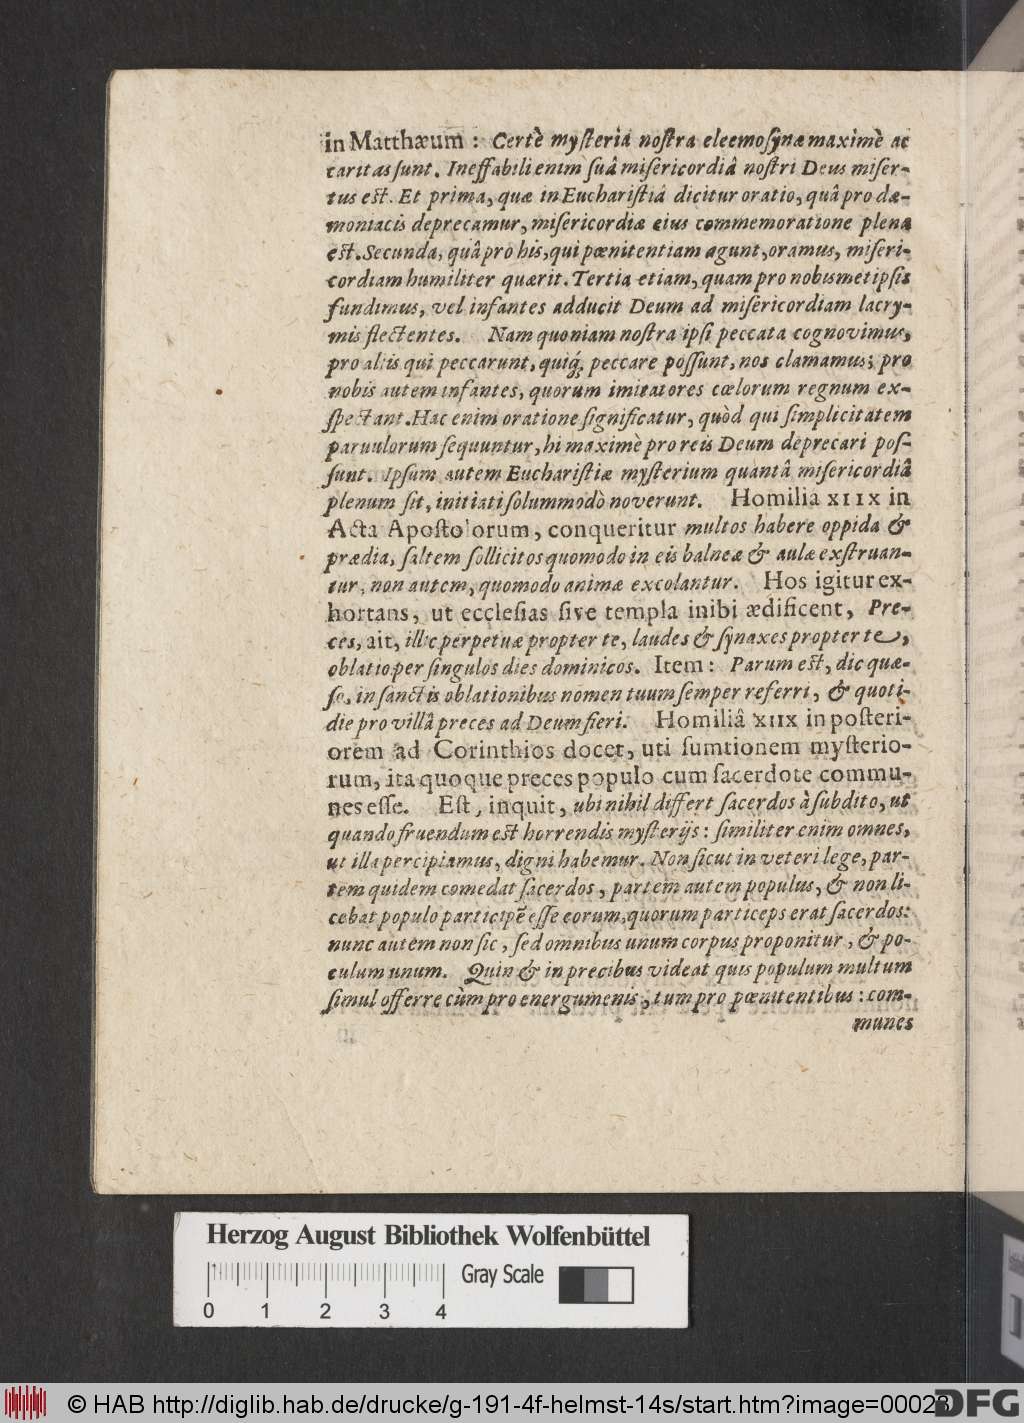 in Matthæum : Certè myſteria noſtra eleemoſynæ maximè ac
caritas ſunt. Ineffabili enim ſuâ miſericordiâ noſtri Deus miſer-
tus eſt. Et prima, quæ in Euchariſtiâ dicitur oratio, quâ pro dæ-
moniacis deprecamur, miſericordiæ eius commemoratione plena
eſt. Secunda, quâ pro his, qui pœnitentiam agunt, oramus, miſeri-
cordiam humiliter quærit. Tertia etiam, quam pro nobismetipſis
fundimus, vel infantes adducit Deum ad miſericordiam lacry-
mis flectentes. Nam quoniam noſtra ipſi peccata cognovimus,
pro aliis qui peccarunt, quiq́; peccare poſſunt, nos clamamus; pro
nobis autem infantes, quorum imitatores cœlorum regnum ex-
ſpectant. Hac enim oratione ſignificatur, quòd qui ſimplicitatem
parvulorum ſequuntur, hi maximè pro reis Deum deprecari poſ-
ſunt. Ipſum autem Euchariſtiæ myſterium quantâ miſericordiâ
plenum ſit, initiati ſolummodò noverunt. Homilia XIIX in
Acta Apoſtolorum, conqueritur multos habere oppida &
prædia, ſaltem ſollicitos quomodo in eis balneæ & aulæ exſtruan-
tur, non autem, quomodo animæ excolantur. Hos igitur ex-
hortans, ut eccleſias ſive templa inibi ædificent, Pre-
ces, ait, illic perpetuæ propter te, laudes & ſynaxes propter te,
oblatio per ſingulos dies dominicos. Item : Parum eſt, dic quæ-
ſo, in ſanctis oblationibus nomen tuum ſemper referri, & quoti-
die pro villâ preces ad Deum fieri. Homiliâ XIIX in poſteri-
orem ad Corinthios docet, uti ſumtionem myſterio-
rum, ita quoque preces populo cum ſacerdote commu-
nes eſſe. Eſt, inquit, ubi nihil differt ſacerdos à ſubdito, ut
quando fruendum eſt horrendis myſterijs : ſimiliter enim omnes,
ut illa percipiamus, digni habemur. Non ſicut in veteri lege, par-
tem quidem comedat ſacerdos, partem autem populus, & non li-
cebat populo participẽ eſſe eorum, quorum particeps erat ſacerdos:
nunc autem non ſic, ſed omnibus unum corpus proponitur, & po-
culum unum. Quin & in precibus videat quis populum multum
ſimul offerre cùm pro energumenis, tum pro pœnitentibus : com-
munes
Herzog August Bibliothek Wolfenbüttel
Gray Scale
0 1 2 3 4
© HAB http://diglib.hab.de/drucke/g-191-4f-helmst-14s/start.htm?image=00023
DFG